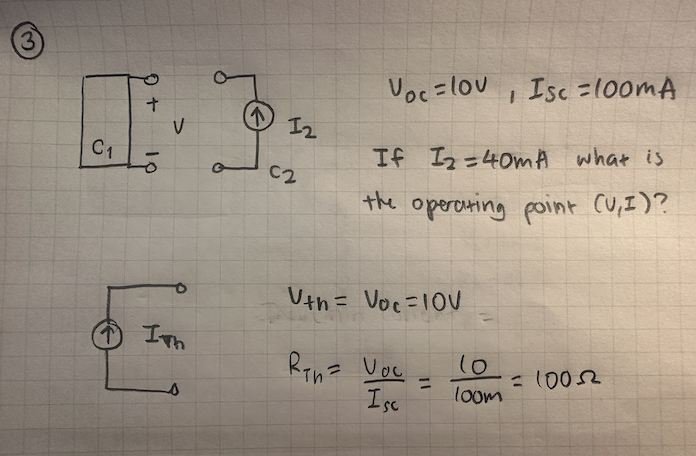 3
+
V
-
C1
I2
C2
Voc = 10V , Isc = 100mA
If I2 = 40mA what is
the operating point (V,I)?
ITh
Vth = Voc = 10V
RTh = Voc / Isc = 10 / 100m = 100Ω